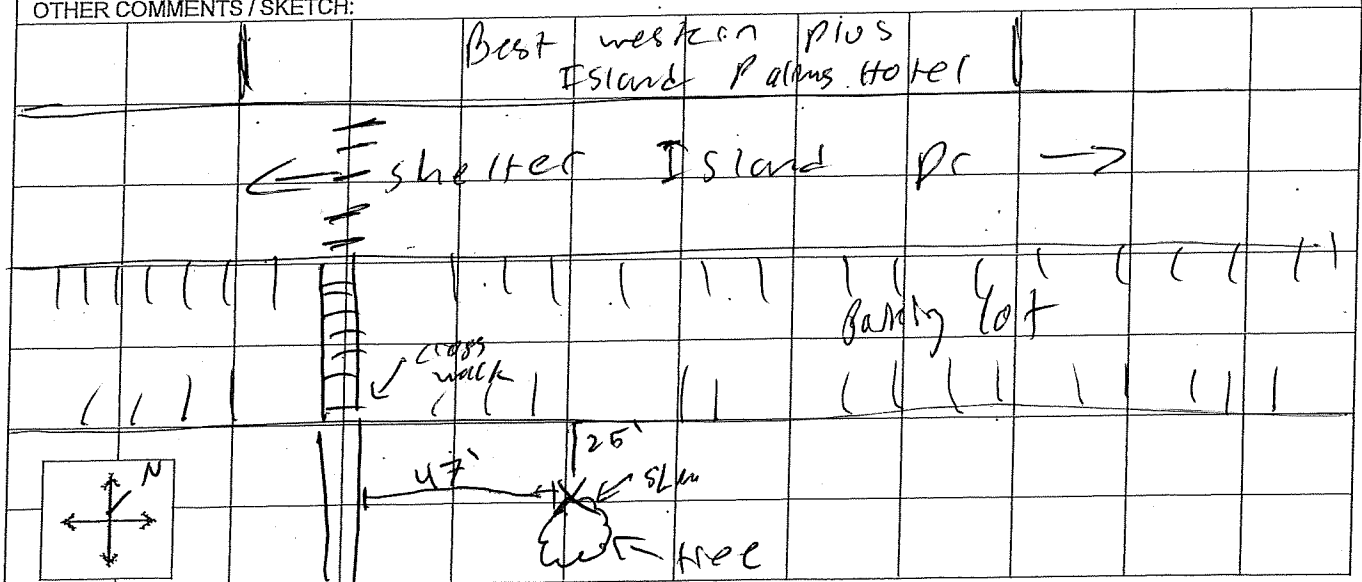 OTHER COMMENTS / SKETCH:
Best western plus
Island Palms Hotel
shelter Island Dr
Parking lot
cross
walk
25'
N
47'
SLM
tree